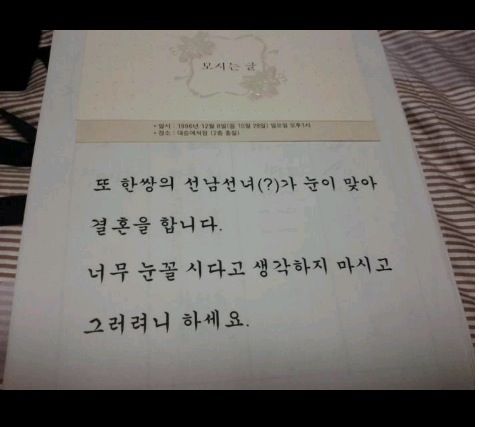 모시는 글
• 일시 : 1996년 12월 8일(음 10월 28일) 일요일 오후1시
• 장소 : 대승예식장 (2층 홀실)
또 한쌍의 선남선녀(?)가 눈이 맞아
결혼을 합니다.
너무 눈꼴 시다고 생각하지 마시고
그러려니 하세요.